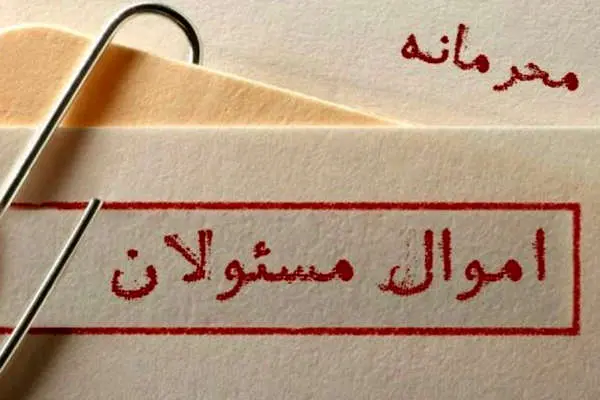 محرمانه
اموال مسئولان